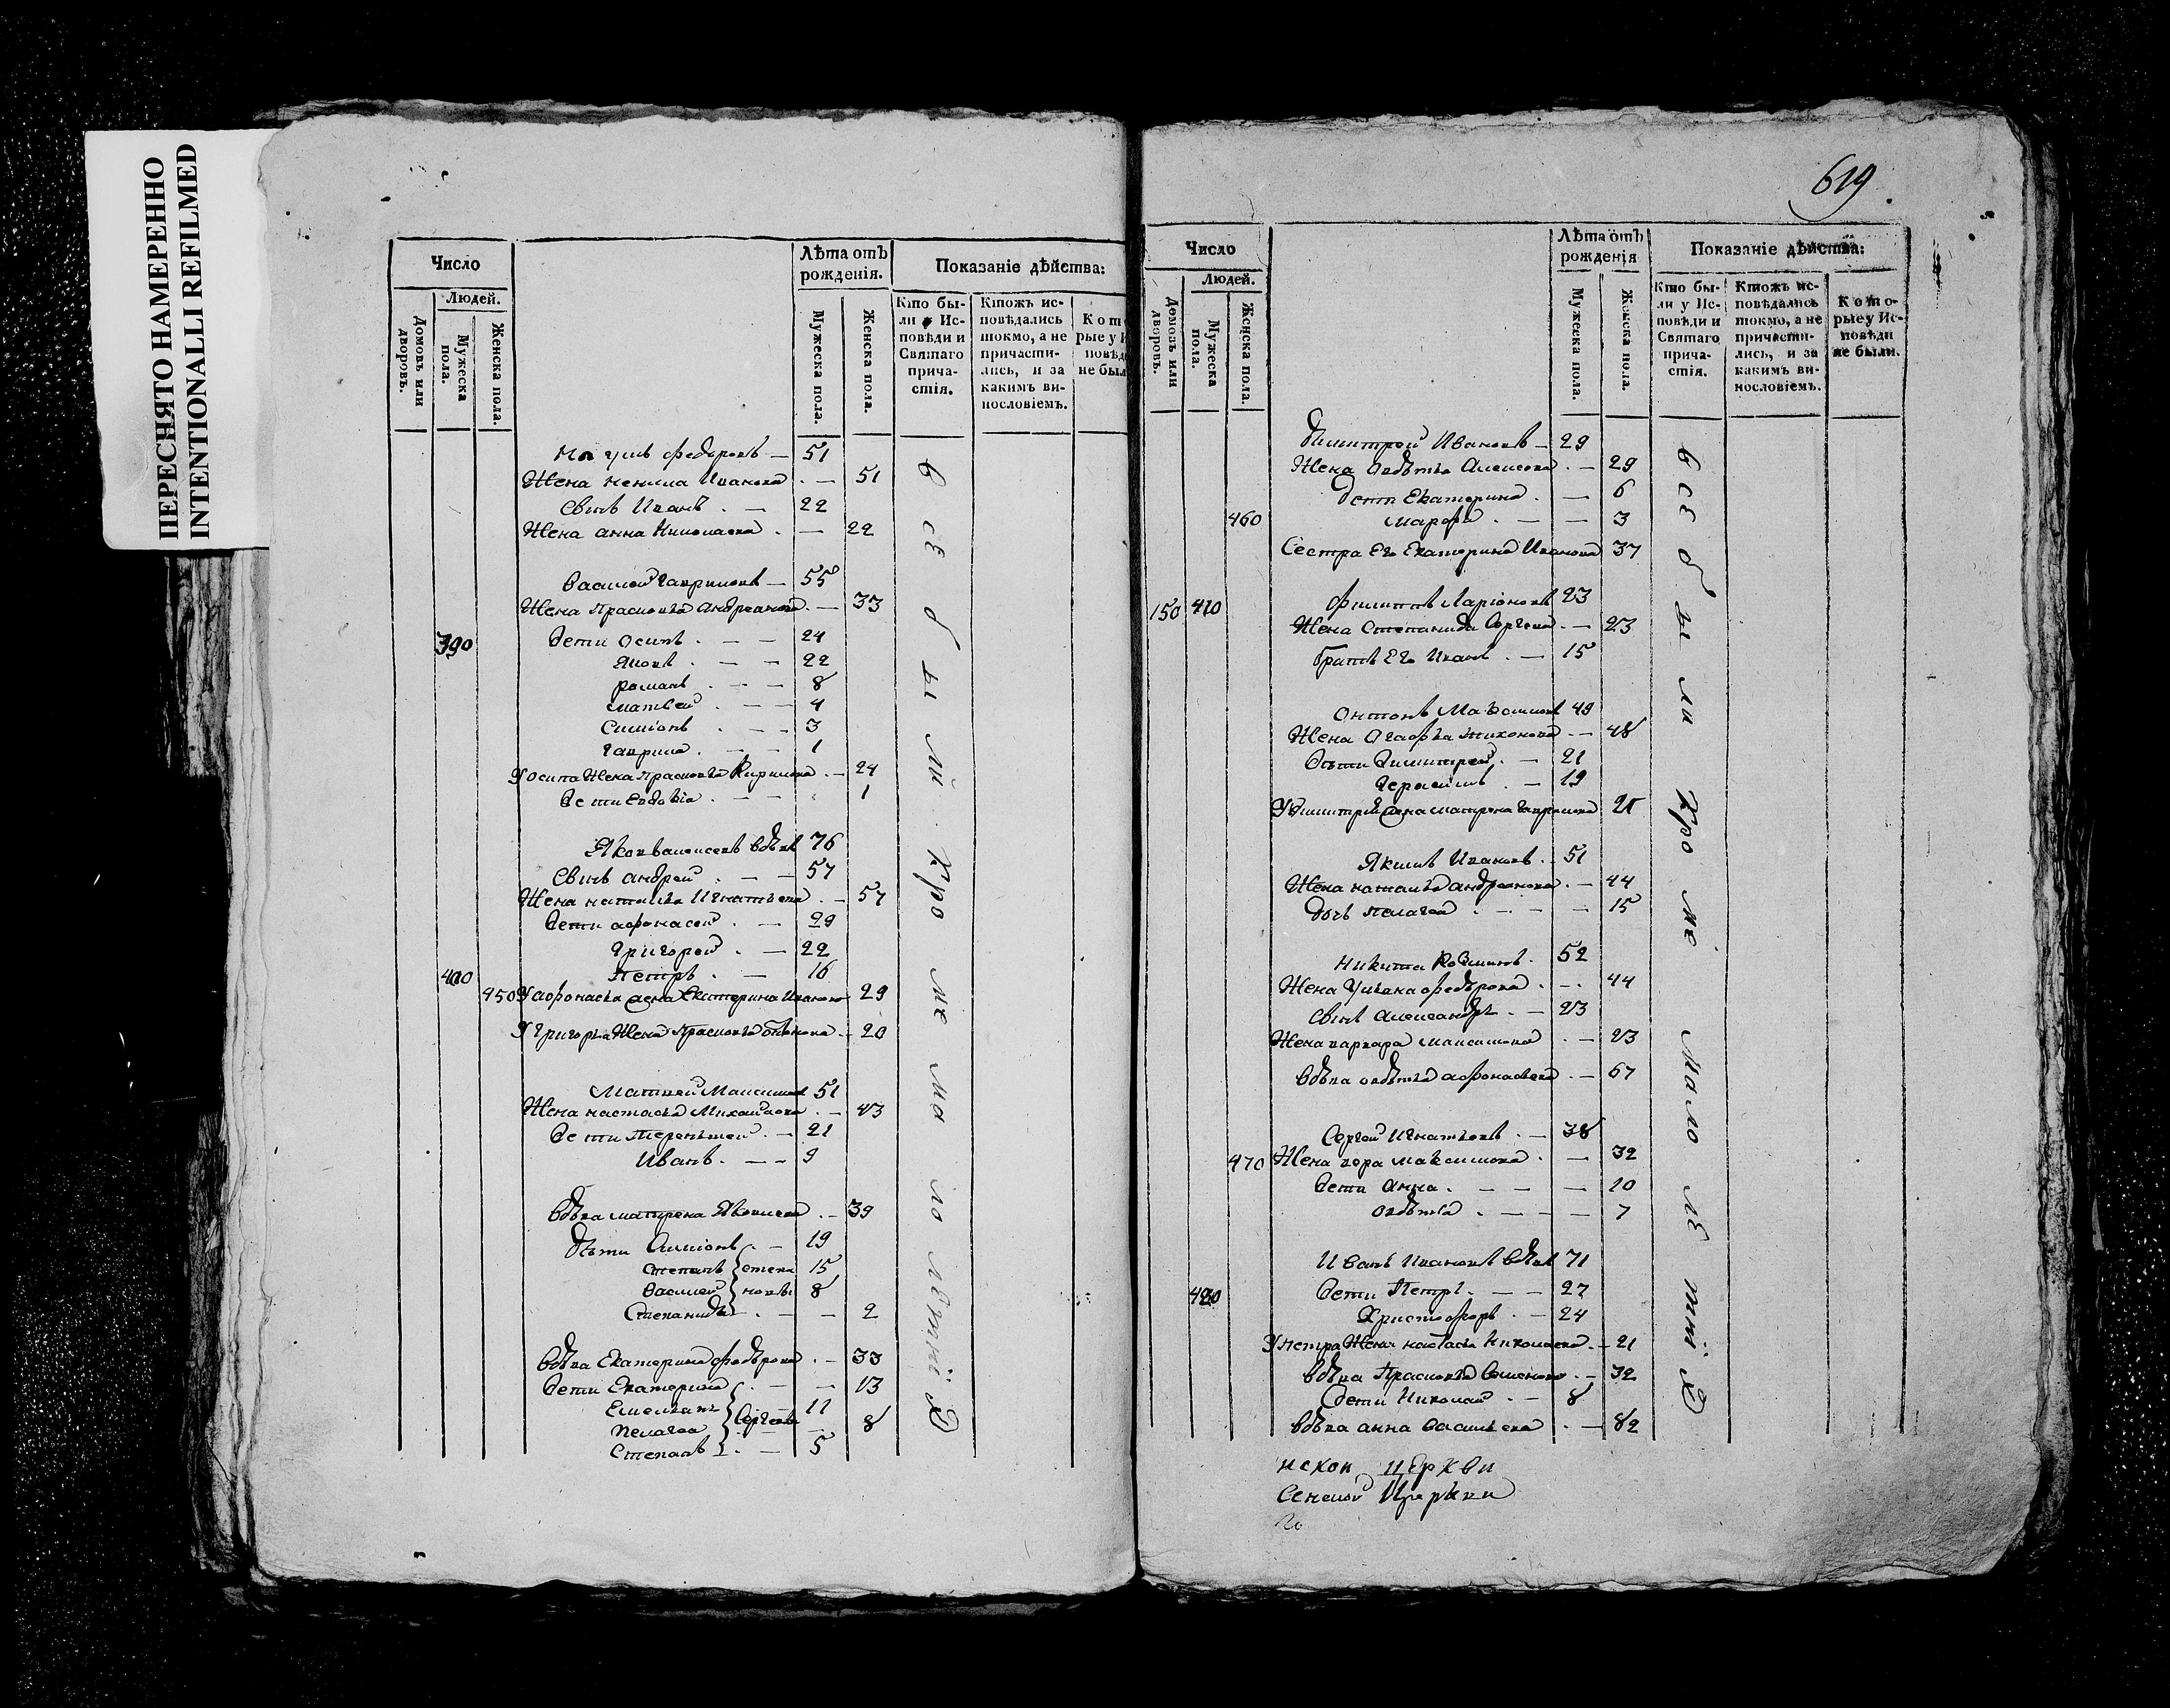 ПЕРЕСНЯТО НАМЕРЕННО
INTENTIONALLI REFILMED
Число
Лѣта отъ рожденія.
Показаніе дѣйства:
Людей.
Домовъ или дворовъ.
Мужеска пола.
Женска пола.
Мужеска пола.
Женска пола.
Кто бы-
ли у Ис-
повѣди и
Святаго
прича-
стія.
Ктожъ ис-
повѣдались
токмо, а не
причасти-
лись, и за
какимъ ви-
нословіемъ.
Кот
рые у
повѣд
не был
федоровъ — 51
Жена Иванова . — 51
Сынъ Иванъ . — 22
Жена анна Николаева . — 22
Василей Гавриловъ — 55
Жена Прасковья андреанова . — 33
390 дети осипъ . — — 24
Яковъ . — — 22
романъ . — — 8
матвей . — — 4
Симіонъ . — — 3
Гаврила . — — 1
У осипа Жена прасковья Кирилова . — 24
дети Евдокія . — — 1
Яковъ алексеевъ вдовъ 76
Сынъ андрей . — — 57
Жена наталья Игнатьева . — 57
дети афонасей . — 29
Григорей . — 22
400 Петръ . — 16
450 У афонасья жена Екатерина Иванова 29
У Григорья Жена Прасковья . — 20
Матвей Максимовъ 51
Жена настасья Михайлова . — 43
дети Терентей . — 21
Иванъ . — — 9
вдова матрена Яковлева . — 39
дѣти Симіонъ . — 19
Степанъ степа 15
Василей новы 8
Степанида . — — 2
вдова Екатерина федорова . — 33
дети Екатерина . — — 13
Емельянъ 11
Пелагея Сергеевы 8
Степанъ . — 5
всѣ были кроме малолѣтнія
619
Число
Лѣта отъ рожденія
Показаніе дѣйства:
Людей.
Домовъ или дворовъ.
Мужеска пола.
Женска пола.
Мужеска пола.
Женска пола.
Кто бы-
ли у Ис-
повѣди и
Святаго
прича-
стія.
Ктожъ ис-
повѣдались
токмо, а не
причасти-
лись, и за
какимъ ви-
нословіемъ.
Кото-
рые у Ис-
повѣди
не были.
Димитрей Ивановъ — 29
Жена Авдотья Алексеева . — 29
дети Екатерина . — 6
460 марфа . — — 3
Сестра Его Екатерина Иванова 37
150 410 филиппъ Ларіоновъ 23
Жена Степанида Сергеева . — 23
братъ Его Иванъ . — 15
Онтонъ Максимовъ 49
Жена Агафья тихонова . — 48
дѣти Димитрей . — 21
Герасимъ . — 19
У Димитрія жена матрена Гаврилова 21
Якимъ Ивановъ . — 51
Жена наталья андреанова . — 44
дочь пелагея . — — — 15
Никита Козминъ . 52
Жена Ульяна федорова . — 44
сынъ александръ . — 23
Жена варвара максимова . — 23
вдова овдотья афонасьева . — 67
Сергей Игнатьевъ . — 38
470 Жена вера максимова . — 32
дети Анна . — — — 10
овдотья . — — — 7
Иванъ Ивановъ вдовъ 71
420 дети Петръ . — — 27
Христофоръ . — 24
У петра Жена настасья Николаева . — 21
вдова Прасковья Семенова . — 32
дети Николай . — 8
вдова анна васильева . — 82
всѣ были кроме малолѣтнія
церкви